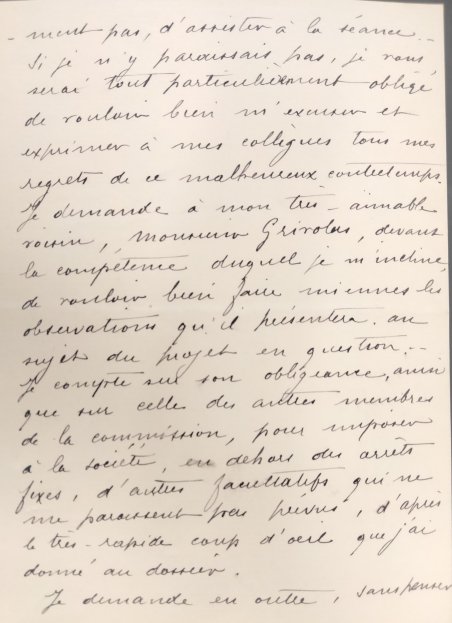 - ment pas, d'assister à la séance. -
Si je n'y paraissais pas, je vous
serai tout particulièrement obligé
de vouloir bien m'excuser et
exprimer à mes collègues tous mes
regrets de ce malheureux contretemps.
Je demande à mon très-aimable
voisin, Monsieur Grivolas, devant
la compétence duquel je m'incline,
de vouloir bien faire miennes les
observations qu'il présentera au
sujet du projet en question. -
Je compte sur son obligeance, ainsi
que sur celles des autres membres
de la commission, pour imposer
à la société, en dehors des arrêts
fixes, d'autres facultatifs qui ne
me paraissent pas prévus, d'après
le très-rapide coup d'oeil que j'ai
donné au dossier.
Je demande en outre, sans penser